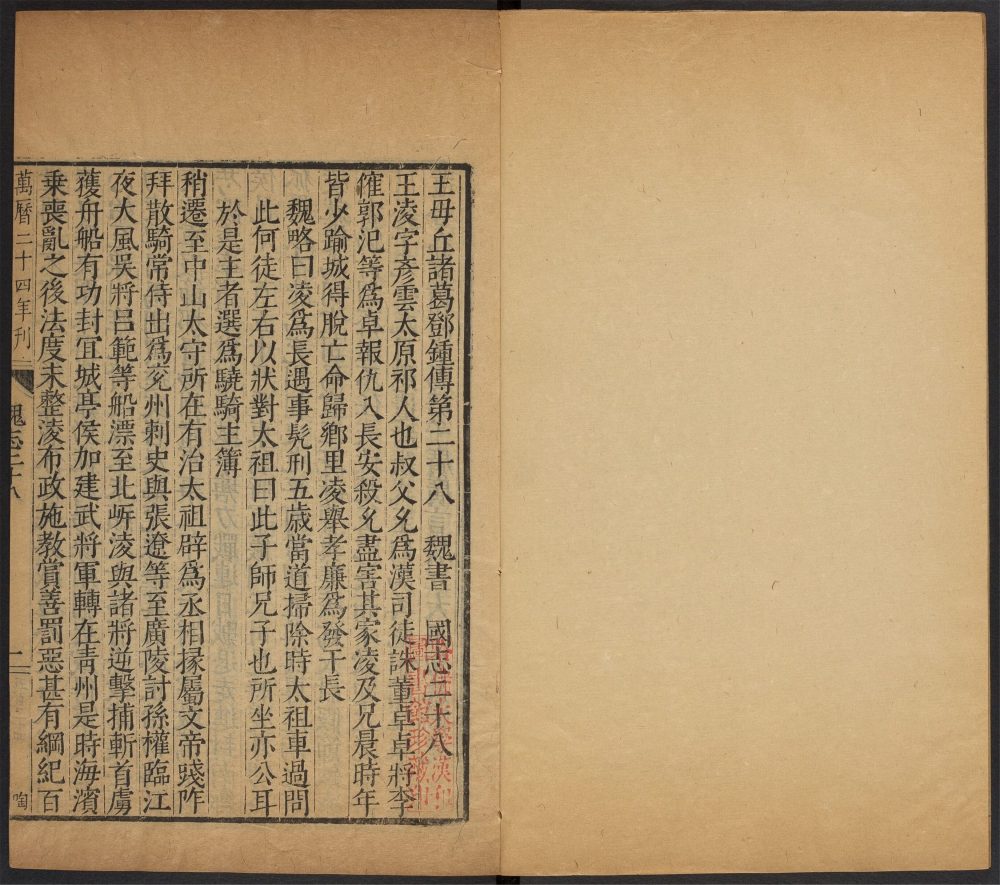 王毋丘諸葛鄧鍾傳第二十八　魏書　國志二十八
王凌字彥雲太原祁人也叔父允爲漢司徒誅董卓卓將李
傕郭汜等爲卓報仇入長安殺允盡害其家凌及兄晨時年
皆少踰城得脫亡命歸鄉里凌舉孝廉爲發干長
魏略曰凌爲長遇事髡刑五歲當道掃除時太祖車過問
此何徒左右以狀對太祖曰此子師兄子也所坐亦公耳
於是主者選爲驍騎主簿
稍遷至中山太守所在有治太祖辟爲丞相掾屬文帝踐阼
拜散騎常侍出爲兖州刺史與張遼等至廣陵討孫權臨江
夜大風吳將呂範等船漂至北岸凌與諸將逆擊捕斬首虜
獲舟船有功封宜城亭侯加建武將軍轉在青州是時海濱
乘喪亂之後法度未整凌布政施教賞善罰惡甚有綱紀百
萬曆二十四年刊
魏志二十八
一
陶